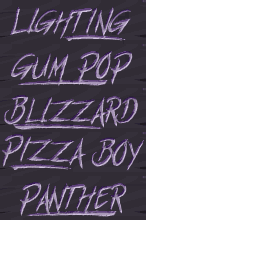 LIGHTING
GUM POP
BLIZZARD
PIZZA BOY
PANTHER